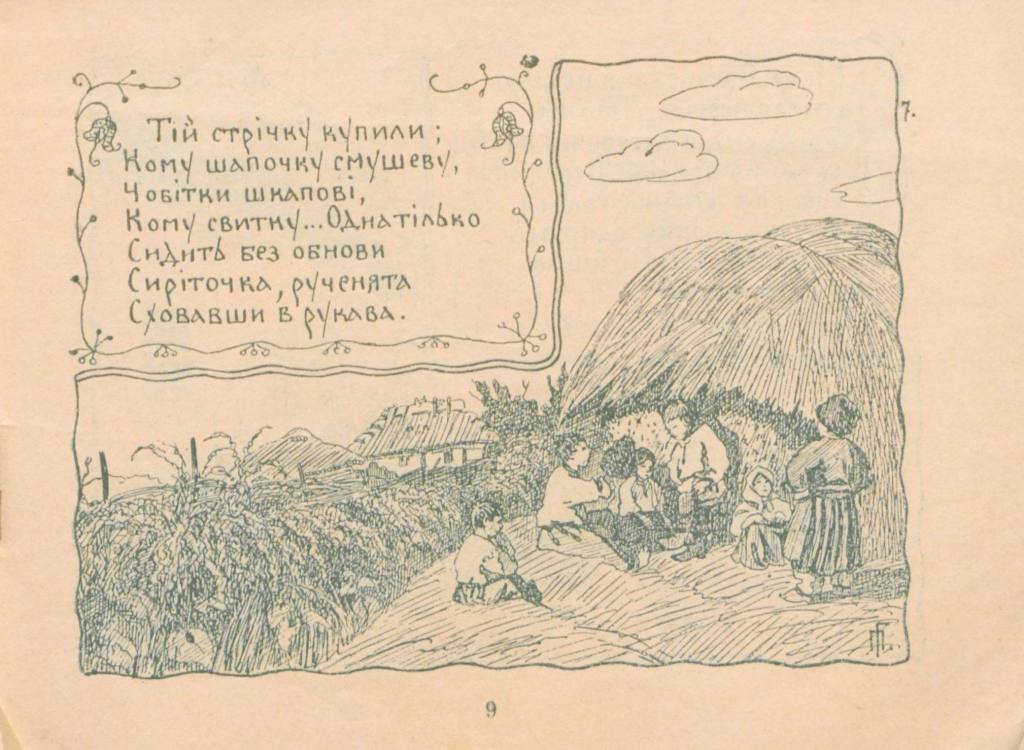 Тій стрічку купили;
Кому шапочку смушеву,
Чобітки шкапові,
Кому свитку...Однатілько
Сидить без обнови
Сиріточка, рученята
Сховавши в рукава.
7.
9